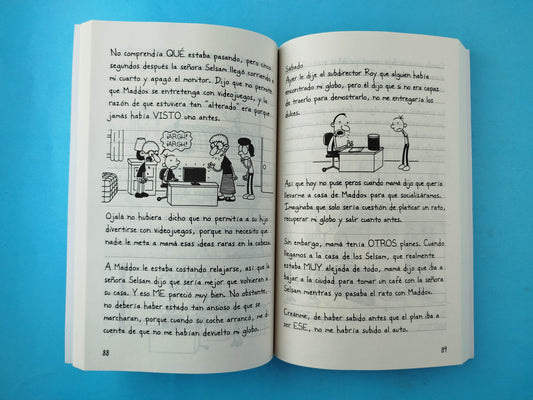 No comprendía QUÉ estaba pasando, pero cinco
segundos después la señora Selsam llegó corriendo a
mi cuarto y apagó el monitor. Dijo que no permite
que Maddox se entretenga con videojuegos, y la
razón de que estuviera tan "alterado" era porque
jamás había VISTO uno antes.
¡ARGH!
¡ARGH!
Ojalá no hubiera dicho que no permitía a su hijo
divertirse con videojuegos, porque no necesito que
nadie le meta a mamá esas ideas raras en la cabeza.
A Maddox le estaba costando relajarse, así que la
señora Selsam dijo que sería mejor que volvieran a
su casa. Y eso ME pareció muy bien. No obstante,
no debería haber estado tan ansioso de que se
marcharan, porque cuando su coche arrancó, me di
cuenta de que no me habían devuelto mi globo.
88
Sábado
Ayer le dije al subdirector Roy que alguien había
encontrado mi globo, pero él dijo que si no era capaz
de traerlo para demostrarlo, no me entregaría los
dulces.
Así que hoy no puse peros cuando mamá dijo que quería
llevarme a casa de Maddox para que socializáramos.
Imaginaba que solo sería cuestión de platicar un rato,
recuperar mi globo y salir cuanto antes.
Sin embargo, mamá tenía OTROS planes. Cuando
llegamos a la casa de los Selsam, que realmente
estaba MUY alejada de todo, mamá dijo que iba a
bajar a la ciudad para tomar un café con la señora
Selsam mientras yo pasaba el rato con Maddox.
Créanme, de haber sabido antes que el plan iba a
ser ESE, no me habría subido al auto.
89